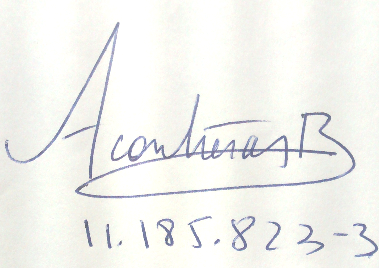 AContrerasB
11.185.823-3